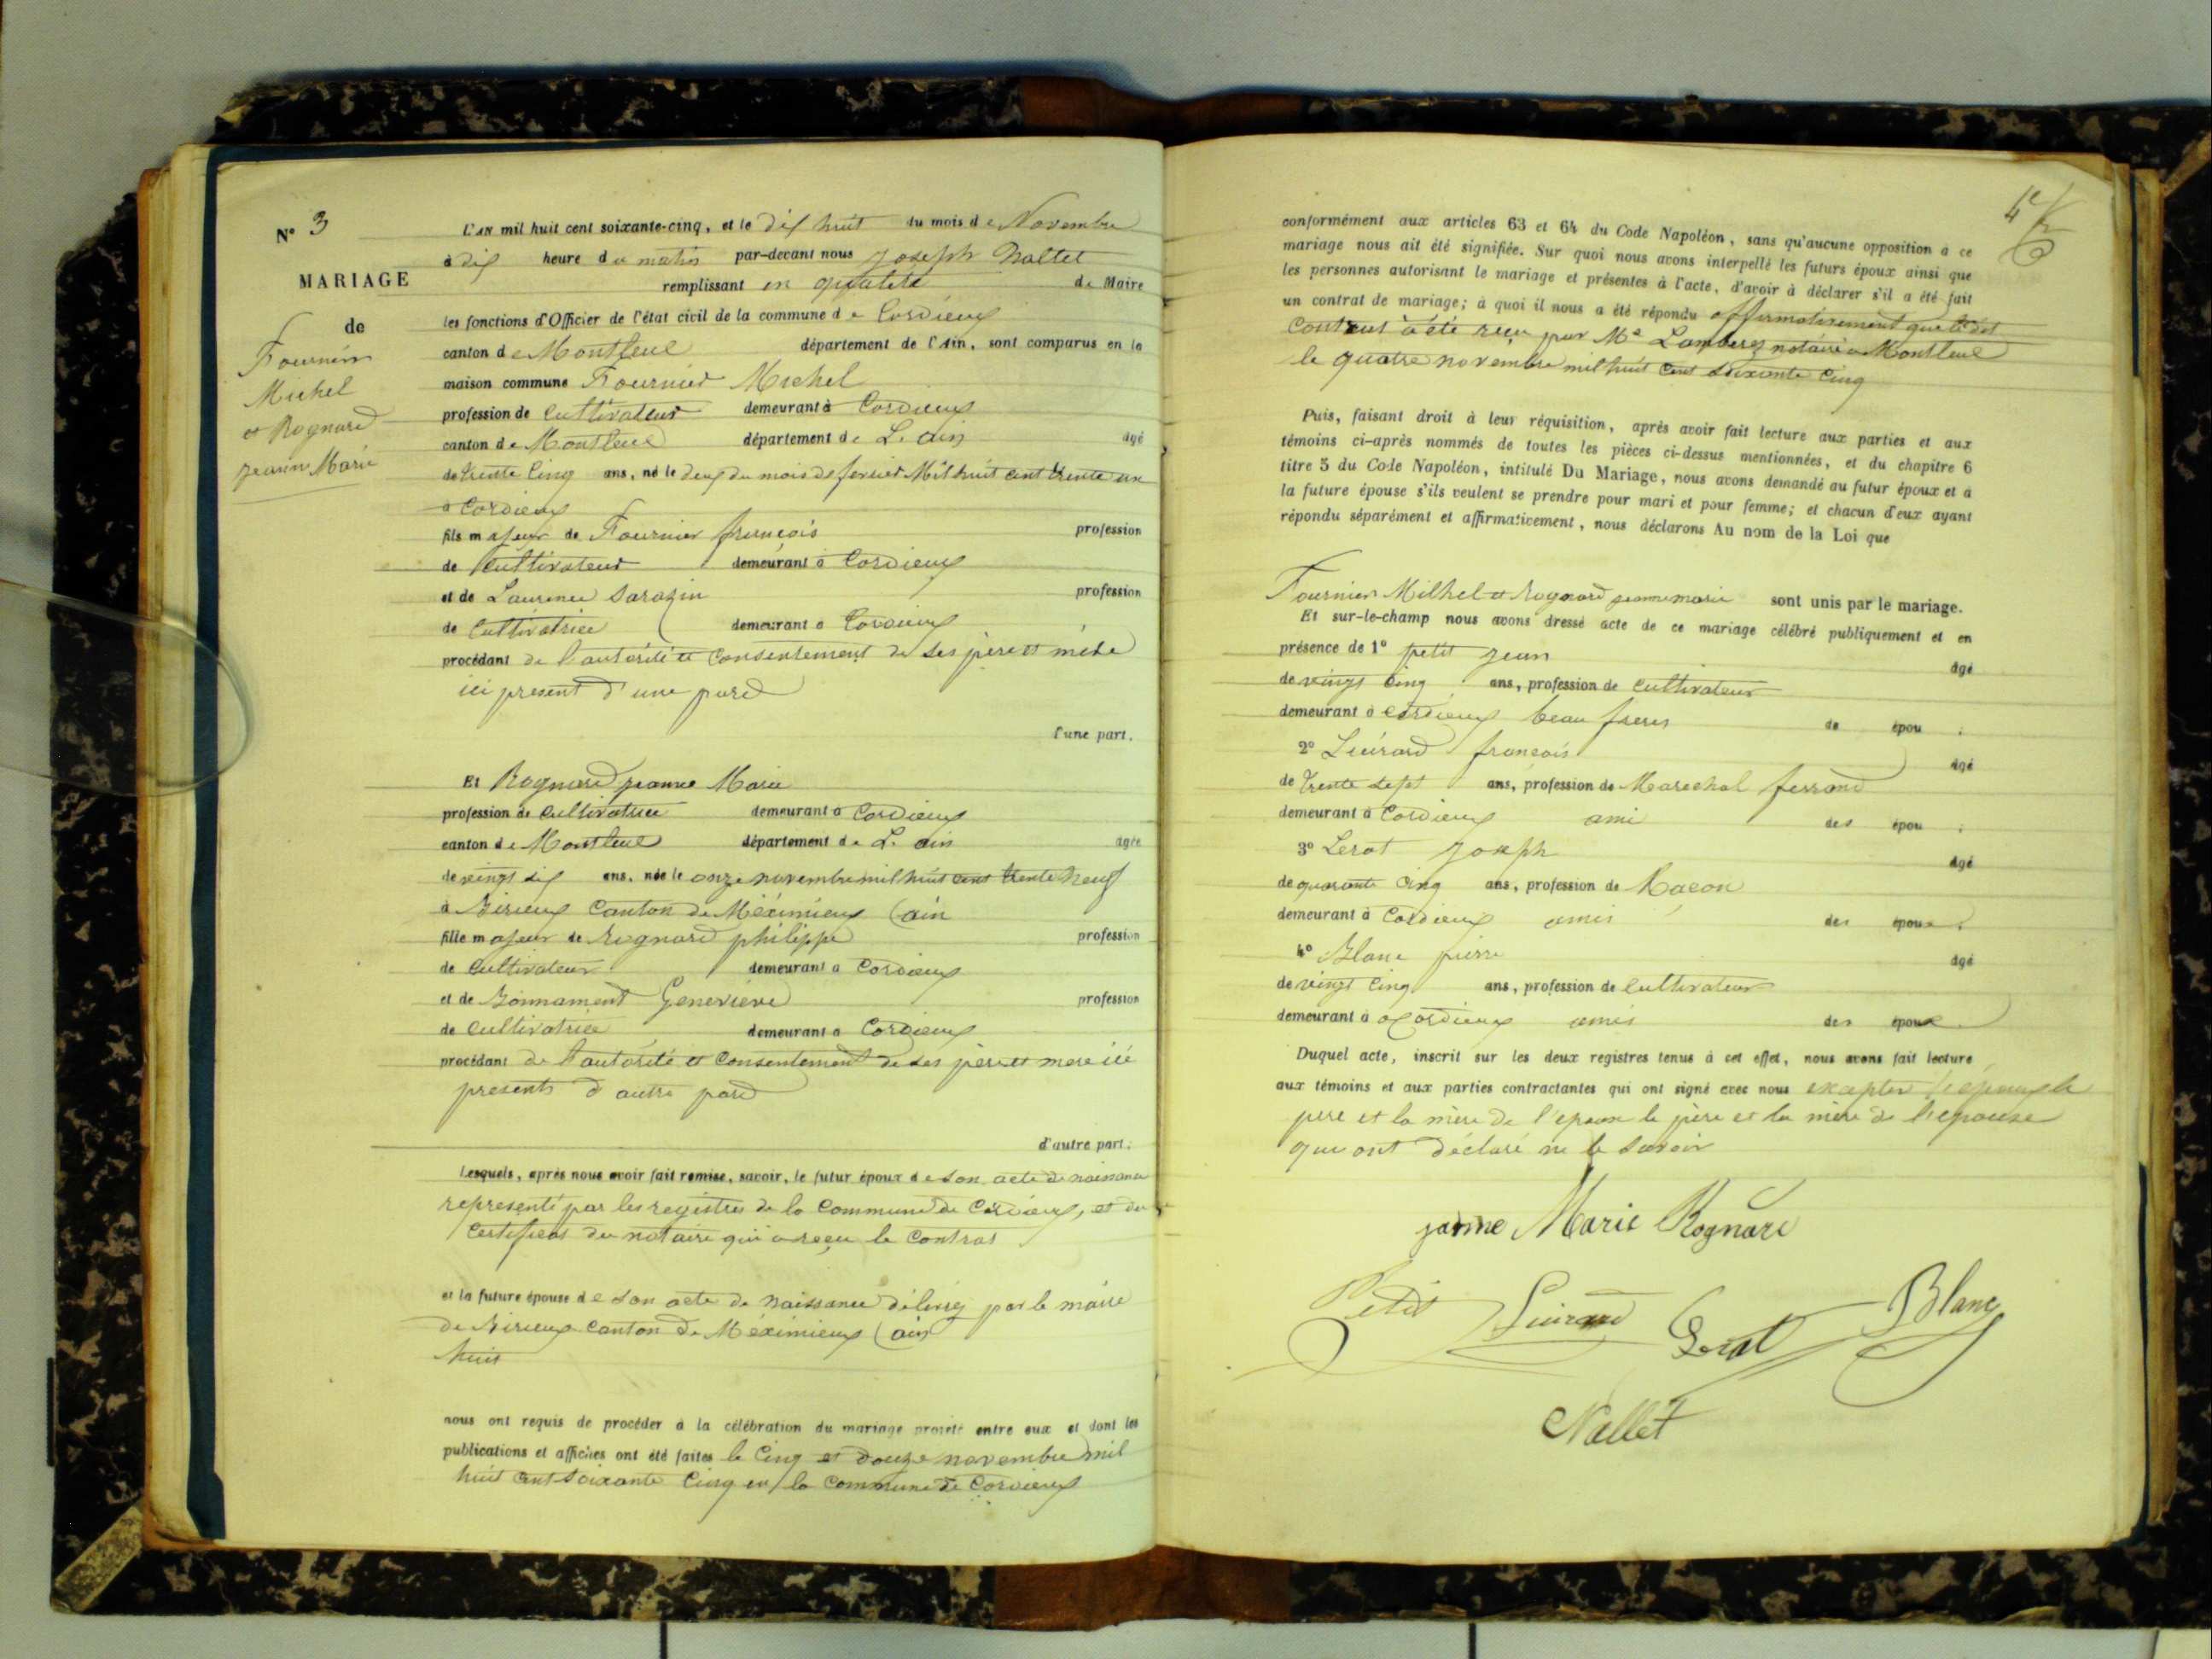 N° 3
MARIAGE
de
Fournier
Michel
et Rognard
Jeanne Marie
L'AN mil huit cent soixante-cinq, et le dix huit du mois de Novembre
à dix heure du matin par-devant nous Joseph Nallet
remplissant en qualité de Maire
les fonctions d'Officier de l'état civil de la commune de Cordieux
canton de Montluel département de l'Ain, sont comparus en la
maison commune Fournier Michel
profession de Cultivateur demeurant à Cordieux
canton de Montluel département de L'ain agé
de trente Cinq ans, né le deux du mois de fevrier Mil huit cent trente un
a Cordieux
fils majeur de Fournier françois profession
de Cultivateur demeurant à Cordieux
et de Laurence Sarazin profession
de Cultivatrice demeurant à Cordieux
procédant de l'autorité et Consentement de ses père et mère
ici present d'une pard
l'une part.
Et Rognard jeanne Marie
profession de Cultivatrice demeurant à Cordieux
canton de Montluel département de L'ain agée
de vingt six ans, née le onze novembre mil huit cent trente Neuf
à Birieux Canton de Méximieux (ain
fille majeur de Rognard philippe profession
de Cultivateur demeurant à Cordieux
et de Bonnament Geneviève profession
de Cultivatrice demeurant à Cordieux
procédant de l'autorité et Consentement de ses père et mere ici
presents d'autre pard
d'autre part.
Lesquels, après nous avoir fait remise, savoir, le futur époux de son acte de naissance
representé par les registres de la Commune de Cordieux, et du
Certificat du notaire qui a reçu le Contrat
et la future épouse de son acte de Naissance délivrez par le maire
de Birieux Canton de Méximieux (ain)
nous ont requis de procéder à la célébration du mariage projeté entre eux et dont les
publications et affiches ont été faites le Cinq et douze novembre mil
huit cent soixante Cinq en la Commune de Cordieux
conformément aux articles 63 et 64 du Code Napoléon, sans qu'aucune opposition a ce
mariage nous ait été signifiée. Sur quoi nous avons interpellé les futurs époux ainsi que
les personnes autorisant le mariage et présentes à l'acte, d'avoir à déclarer s'il a été fait
un contrat de mariage; à quoi il nous a été répondu affirmativement que le dit
Contrat a été reçu par Me notaire a Montluel
le quatre novembre mil huit Cent Soixante Cinq
Puis, faisant droit à leur réquisition, après avoir fait lecture aux parties et aux
témoins ci-après nommés de toutes les pièces ci-dessus mentionnées, et du chapitre 6
titre 5 du Code Napoléon, intitulé Du Mariage, nous avons demandé au futur époux et à
la future épouse s'ils veulent se prendre pour mari et pour femme; et chacun d'eux ayant
répondu séparément et affirmativement, nous déclarons Au nom de la Loi que
Fournier Milhel et Rognard jeanne marie sont unis par le mariage.
Et sur-le-champ nous avons dressé acte de ce mariage célébré publiquement et en
présence de 1° petit jean agé
de vingt Cinq ans, profession de Cultivateur
demeurant à Cordieux beau freres de épou
2° Luirard françois agé
de trente sept ans, profession de Marechal ferrand
demeurant à Cordieux ami des épou
3° Lerat Joseph agé
de quarante Cinq ans, profession de Maçon
demeurant à Cordieux amis des époux
4° Blanc pierre agé
de vingt Cinq ans, profession de Cultivateur
demeurant à a Cordieux amis des époux
Duquel acte, inscrit sur les deux registres tenus à cet effet, nous avons fait lecture
aux témoins et aux parties contractantes qui ont signé avec nous excepter l'epoux le
pere et la mère de l'epoux le père et la mère de l'epouse
qui ont déclaré ne le savoir
janne Marie Rognard
Petit Luirard Lerat Blanc
Nallet